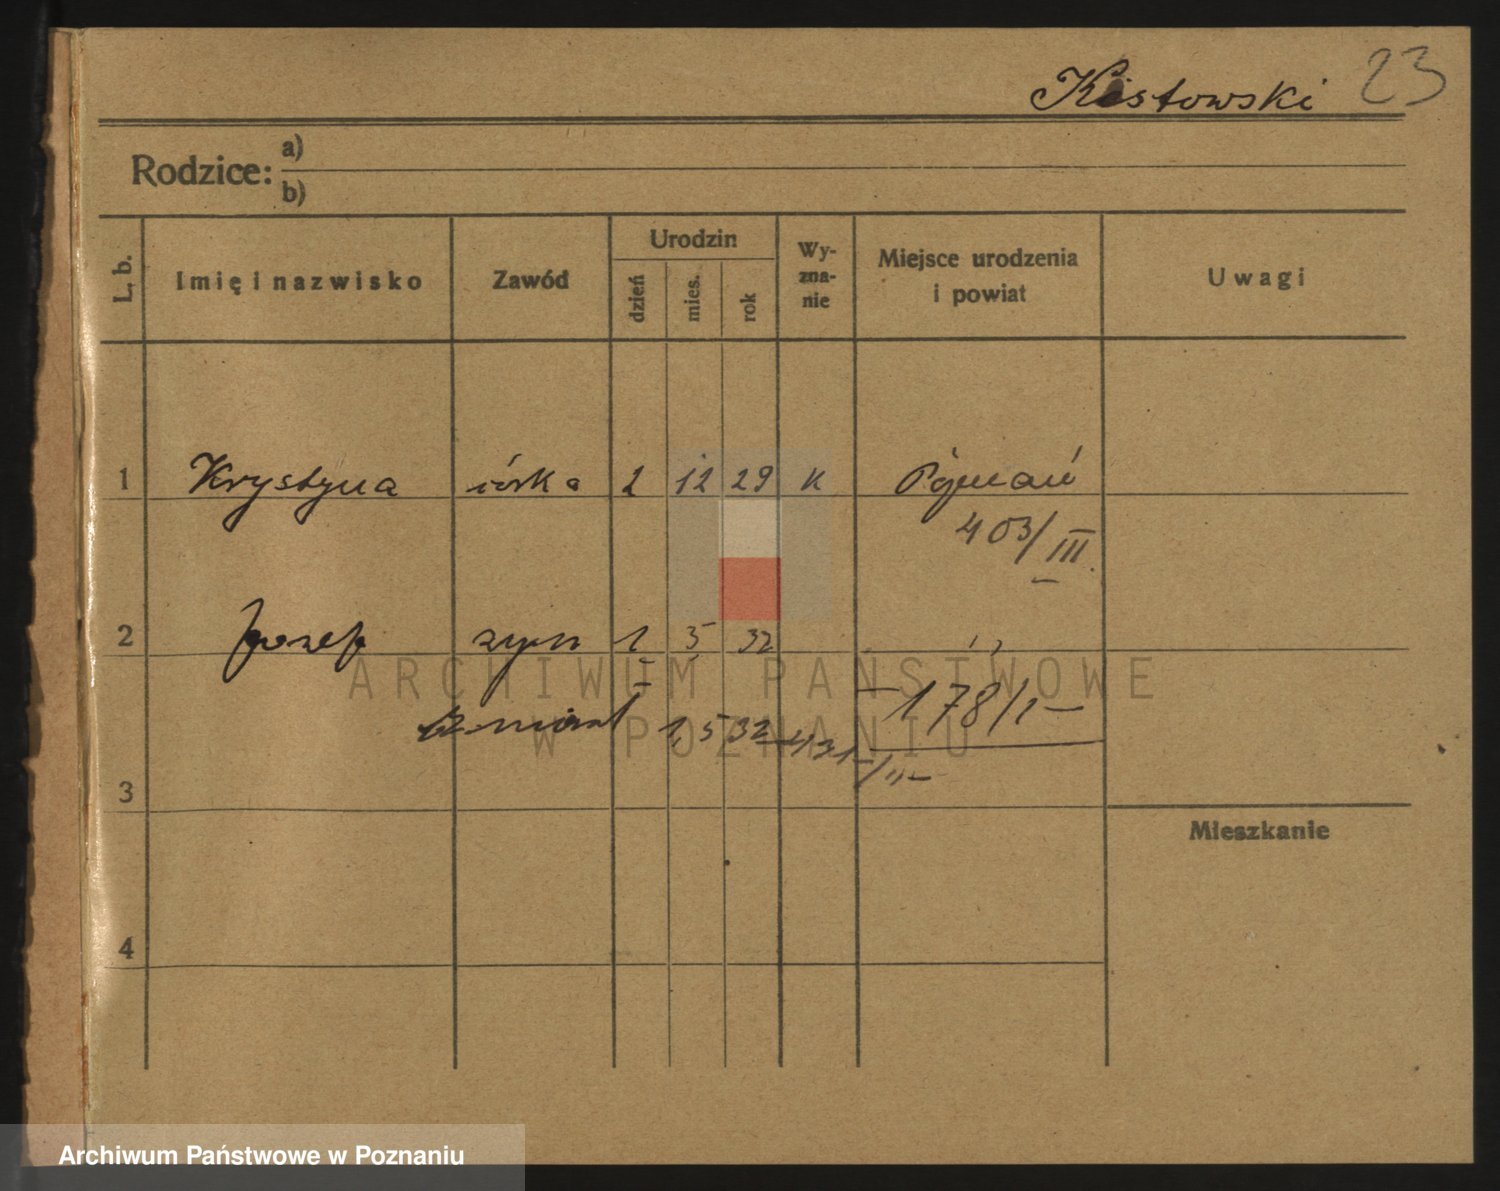 Kistowski 23
Rodzice: a)
b)
L. b. Imię i nazwisko Zawód Urodzin dzień mies. rok Wy-zna-nie Miejsce urodzenia i powiat Uwagi
1 Krystyna córka 2 12 29 K Poznań
403/III
2 Józef syn 1 5 32 ,,
178/I
zmarł 1,5 32 431/II
3
Mieszkanie
4
ARCHIWUM PAŃSTWOWE
W POZNANIU
Archiwum Państwowe w Poznaniu